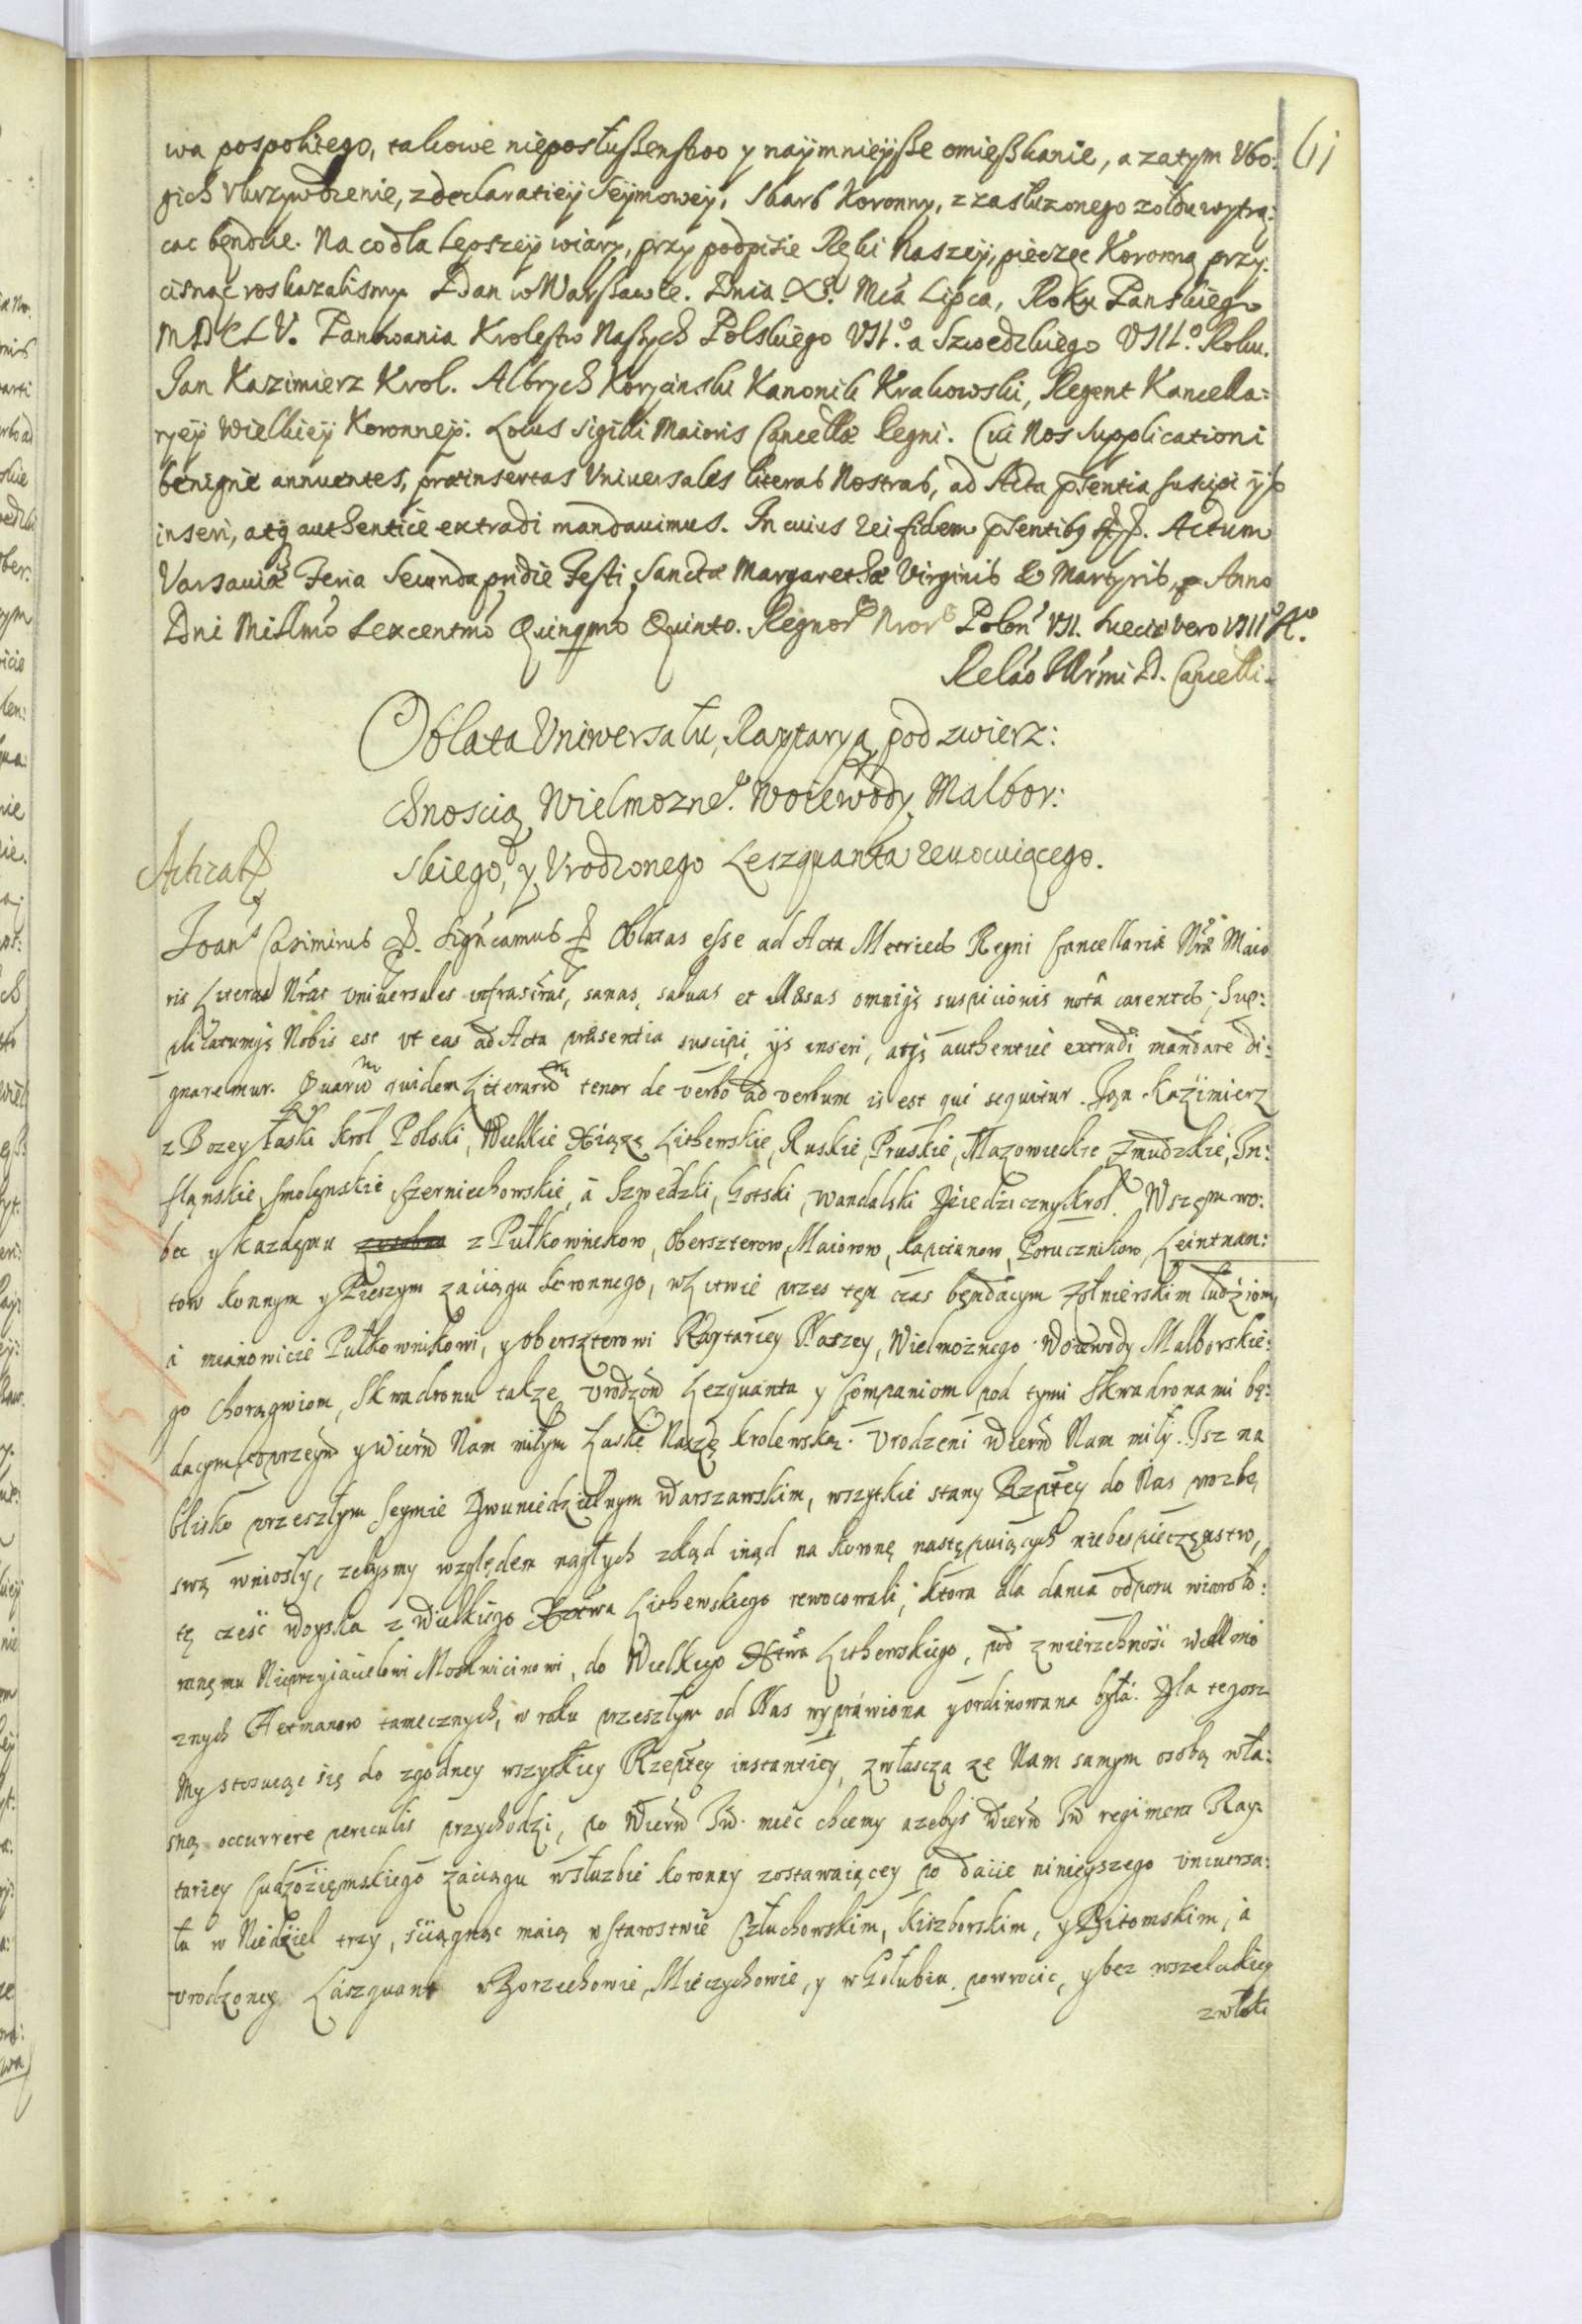 61
wa pospolitego, takowe nieposłuſzenstwo y naymnieyſze omieſzkanie, a zatym Vbo:
gich vkrzywdzenie, z declaratiey Seymowey, Skarb Koronny, z zasłuzonego zołdu wytrą:
cac będzie. Na co dla lepszey wiary, przy podpisie Ręki Naszey, pieczęc Koronną przy:
cisnąc roskazalismy. Dan w Warſzawie. Dnia X. Mca Lipca, Roku Panskiego
MDCLV. Panowania Krolestw Naſzych Polskiego VII.° a Szwedzkiego VIII.° Roku.
Jan Kazimierz Krol. Albrych Korycinski Kanonik Krakowski, Regent Kancella=
ryey Wielkiey Koronney. Locus Sigilli Maioris Cancellæ Regni. Cui Nos Supplicationi
benigne annuentes, præinsertas Vniuersales literas Nostras, ad Acta pñtia suscipi ijs
inseri, atq authentice extradi mandauimus. In cuius rei fidem pñtibus. Actum
Varsaviæ Feria Secunda pridie Festi Sanctæ Margarethæ Virginis & Martyris, Anno
Dni Millmo Sexcentmo Quinqmo Quinto. Regnor Nror Polon VII. Sueciæ vero VIII A°.
Relāo Illrmi D. Cancelli.
Oblata Vniwersału, Raytaryą pod zwierz:
chnoscią Wielmozne°. Woiewody Malbor:
skiego, y Vrodzonego Leszquanta reuocuiącego.
Joans Casimirus. Signcamus Oblatas esse ad Acta Metrices Regni Cancellariæ Nræ Maio
ris Literas Nras vniuersales infrascras, sanas, saluas et illæsas omniq suspicionis notâ carentes; Sup:
plicatumq Nobis est vt eas ad Acta præsentia suscipi, ijs inseri, atq authenticè extradi mandare di:
gnaremur. Quarum quidem Literarum tenor de verbo ad verbum is est qui sequitur. Jan Kazimierz
z Bozey łaski Krol Polski, Wielkie Xiąze Lithewskie, Ruskie, Pruskie, Mazowieckie Zmudzkie, In:
flanskie, Smolynskie Czerniechowskie, a Szwedzki, Gotski, wandalski Dziedziczny Krol. Wszem wo:
bec y Kazdęmu z Pułkownikow, Oberszterow, Maiorow, Kapitanow, Porucznikow, Leintnan:
tow konnym y Pieszym zaciągu koronnego, w Litwie przes tęn czas będącym zołnierskim ludziom,
a mianowicie Pułkownikowi, y Oberszterowi Raytariey Naszey, Wielmoznego Woiewody Malborskie:
go Chorągwiom, Skwadronu takze vrodzon Lezguanta y Companiom pod tymi Skwadronami bę:
dącym uprzeym y wiern Nam miłym Łaskę Naszę krolewską. Vrodzeni wiern Nam mili. Isz na
blisko przeszłym Seymie Dwuniedzielnym Warszawskim, wszytkie stany Rzptey do Nas prozbę
swą wniosły, zebysmy względem nagłych zkąd inąd na Koronę następuiących niebespieczęnstw,
tę częsc woyska z Wielkiego Xtwa Lithewskiego rewocowali, ktora dla dania odporu wiaroło:
mnęmu Nieprzyiacielowi Moskwicinowi, do Wielkiego Xtwa Lithewskiego, pod zwierzchnosc Wielmo
znych Hetmanow tamecznych, w roku przeszłym od Nas wyprawiona y ordinowana była. Dla tegosz
My stosuiąc się do zgodney wszytkiey Rzeptey instantiey, zwłascza ze Nam samym osobą wła:
sną occurrere periculis przychodzi, po Wiern Tw. miec chcemy azebys Wiern Tw regiment Ray:
tariey Cudzozięmskiego zaciągu w słuzbie koronny zostawaiącey po dacie ninieyszego vniuersa:
łu w Niedziel trzy, sciągnąc maią w Starostwie Człuchowskim, Kiszborskim, y Bitomskim, a
vrodzoney Lászquant w Borzechowie, Mieczychowie, y w Gołubiu powrocic, y bez wszelakiey
zwłoki